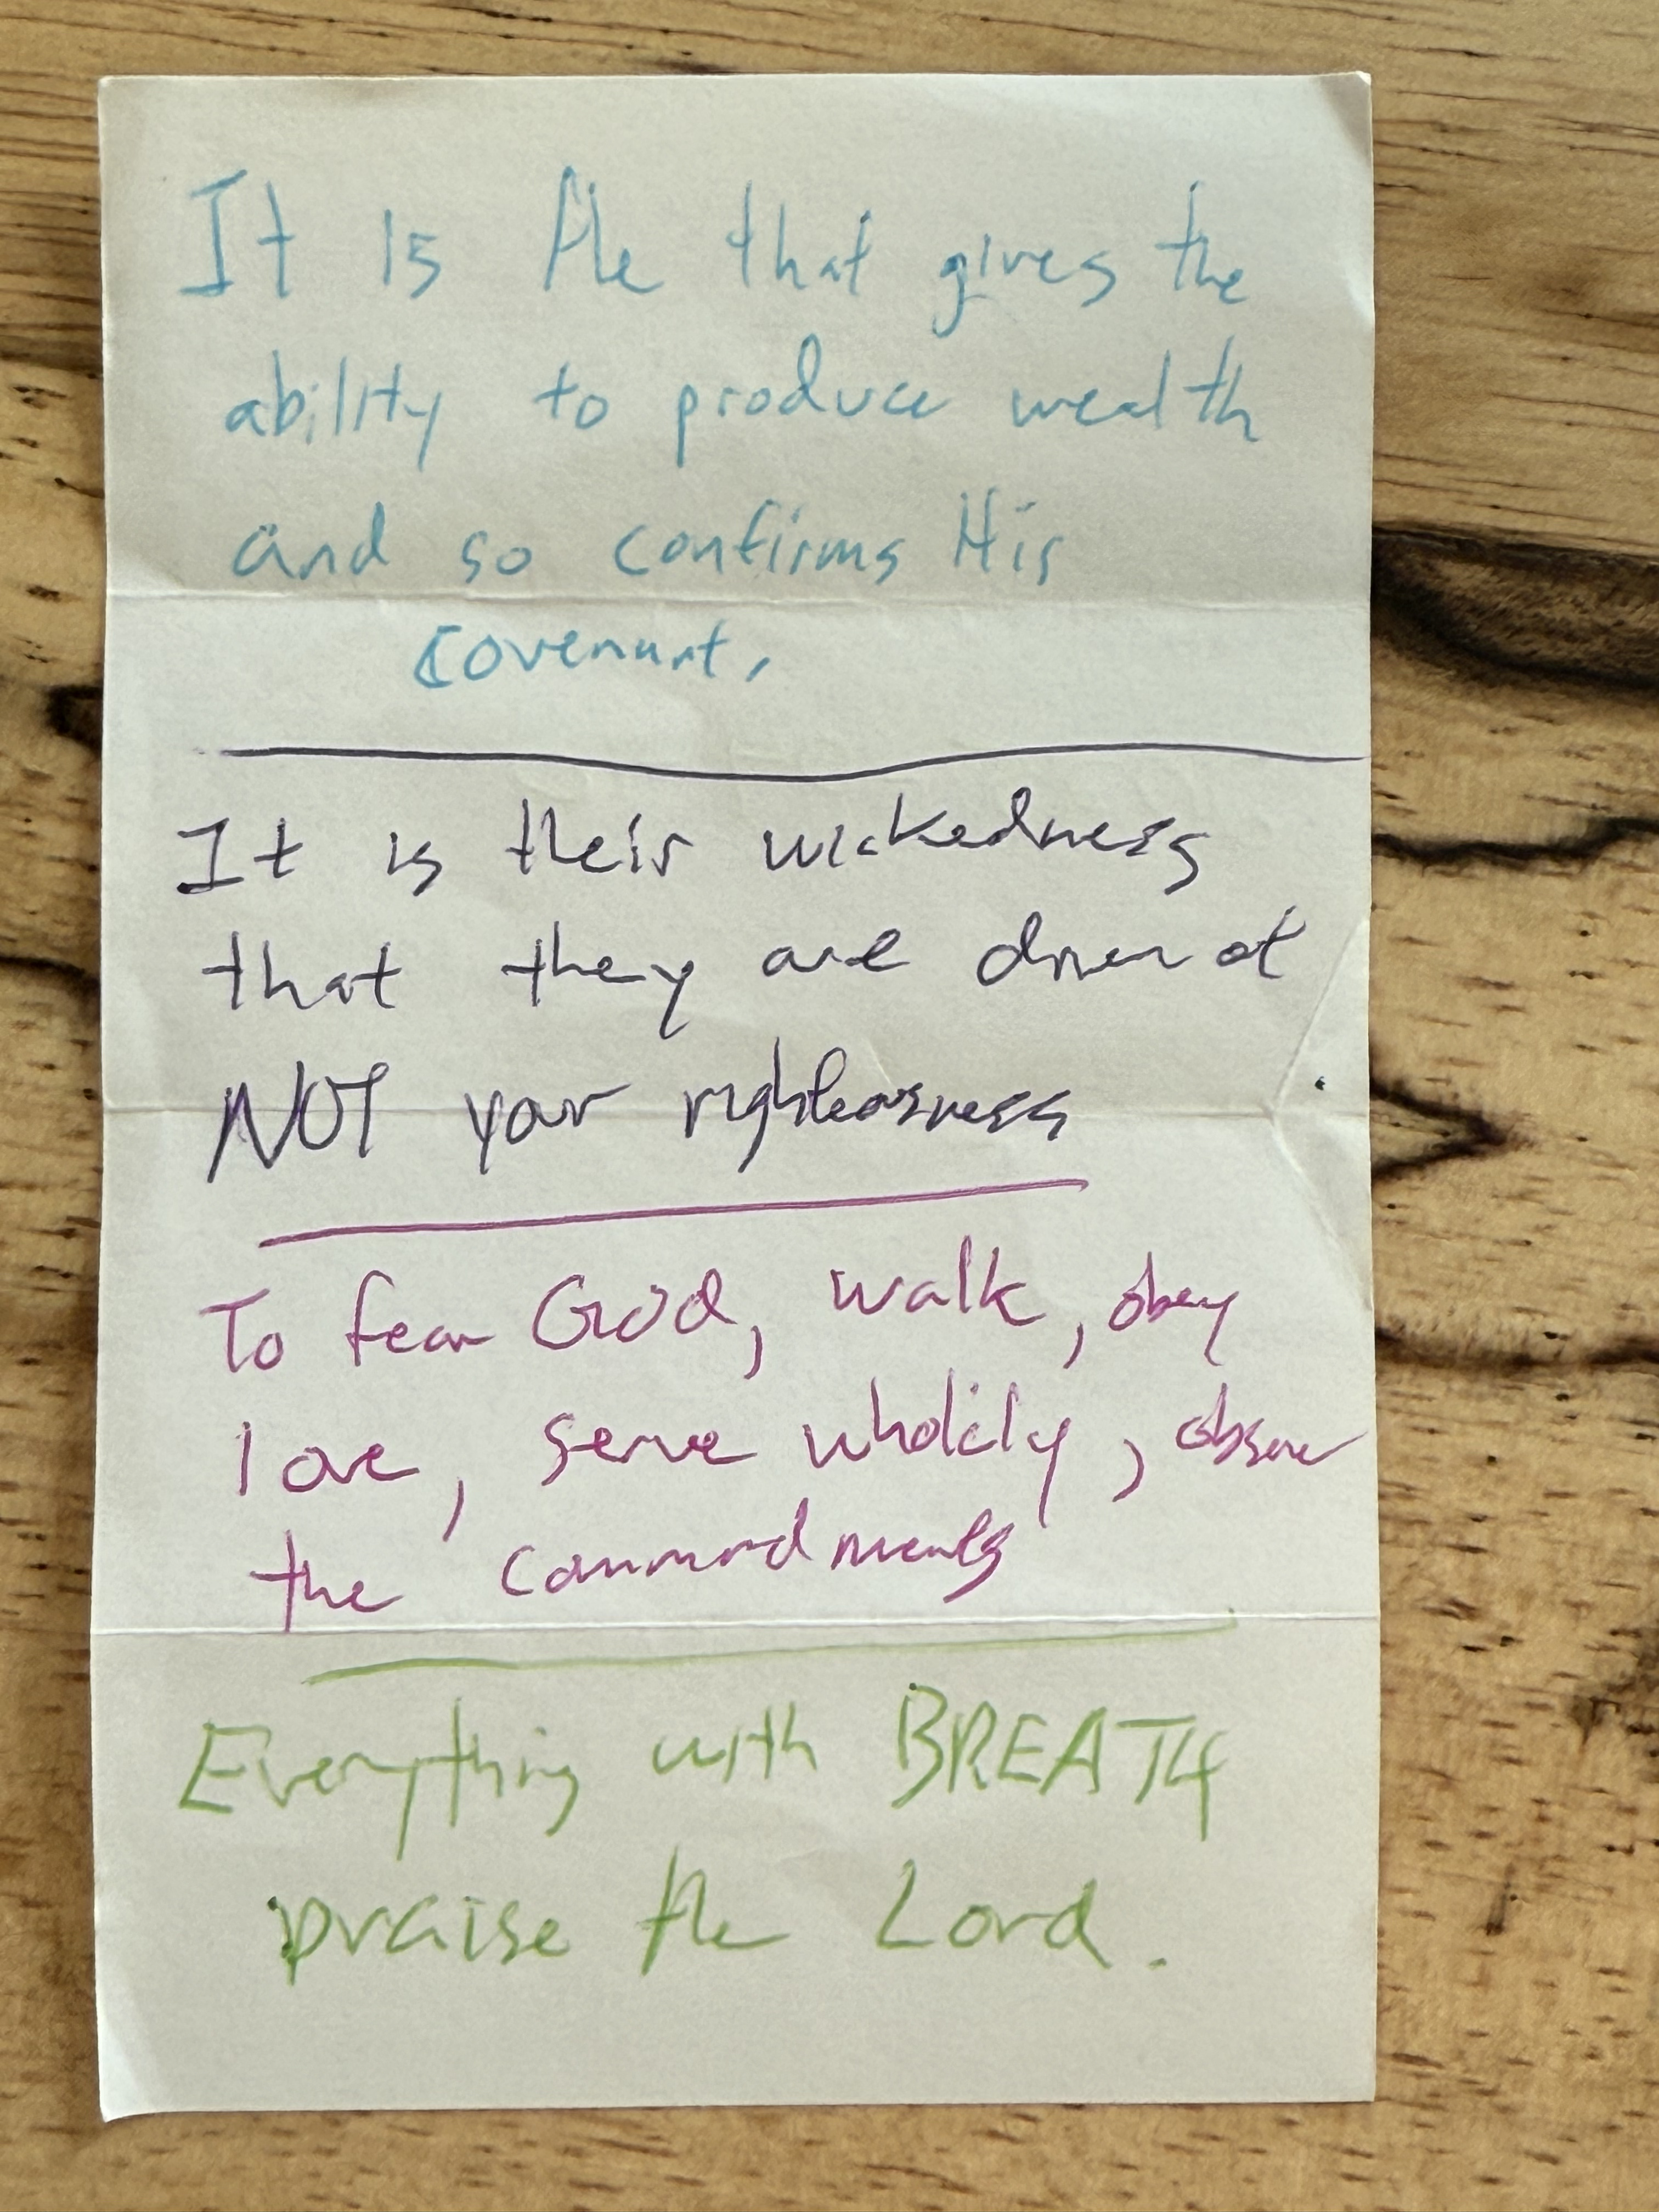 It is He that gives the
ability to produce wealth
and so confirms His
Covenant.
It is their wickedness
that they are driven out
NOT your righteousness
To fear God, walk, obey
love, serve wholily, observe
the commandments
Everything with BREATH
praise the Lord.